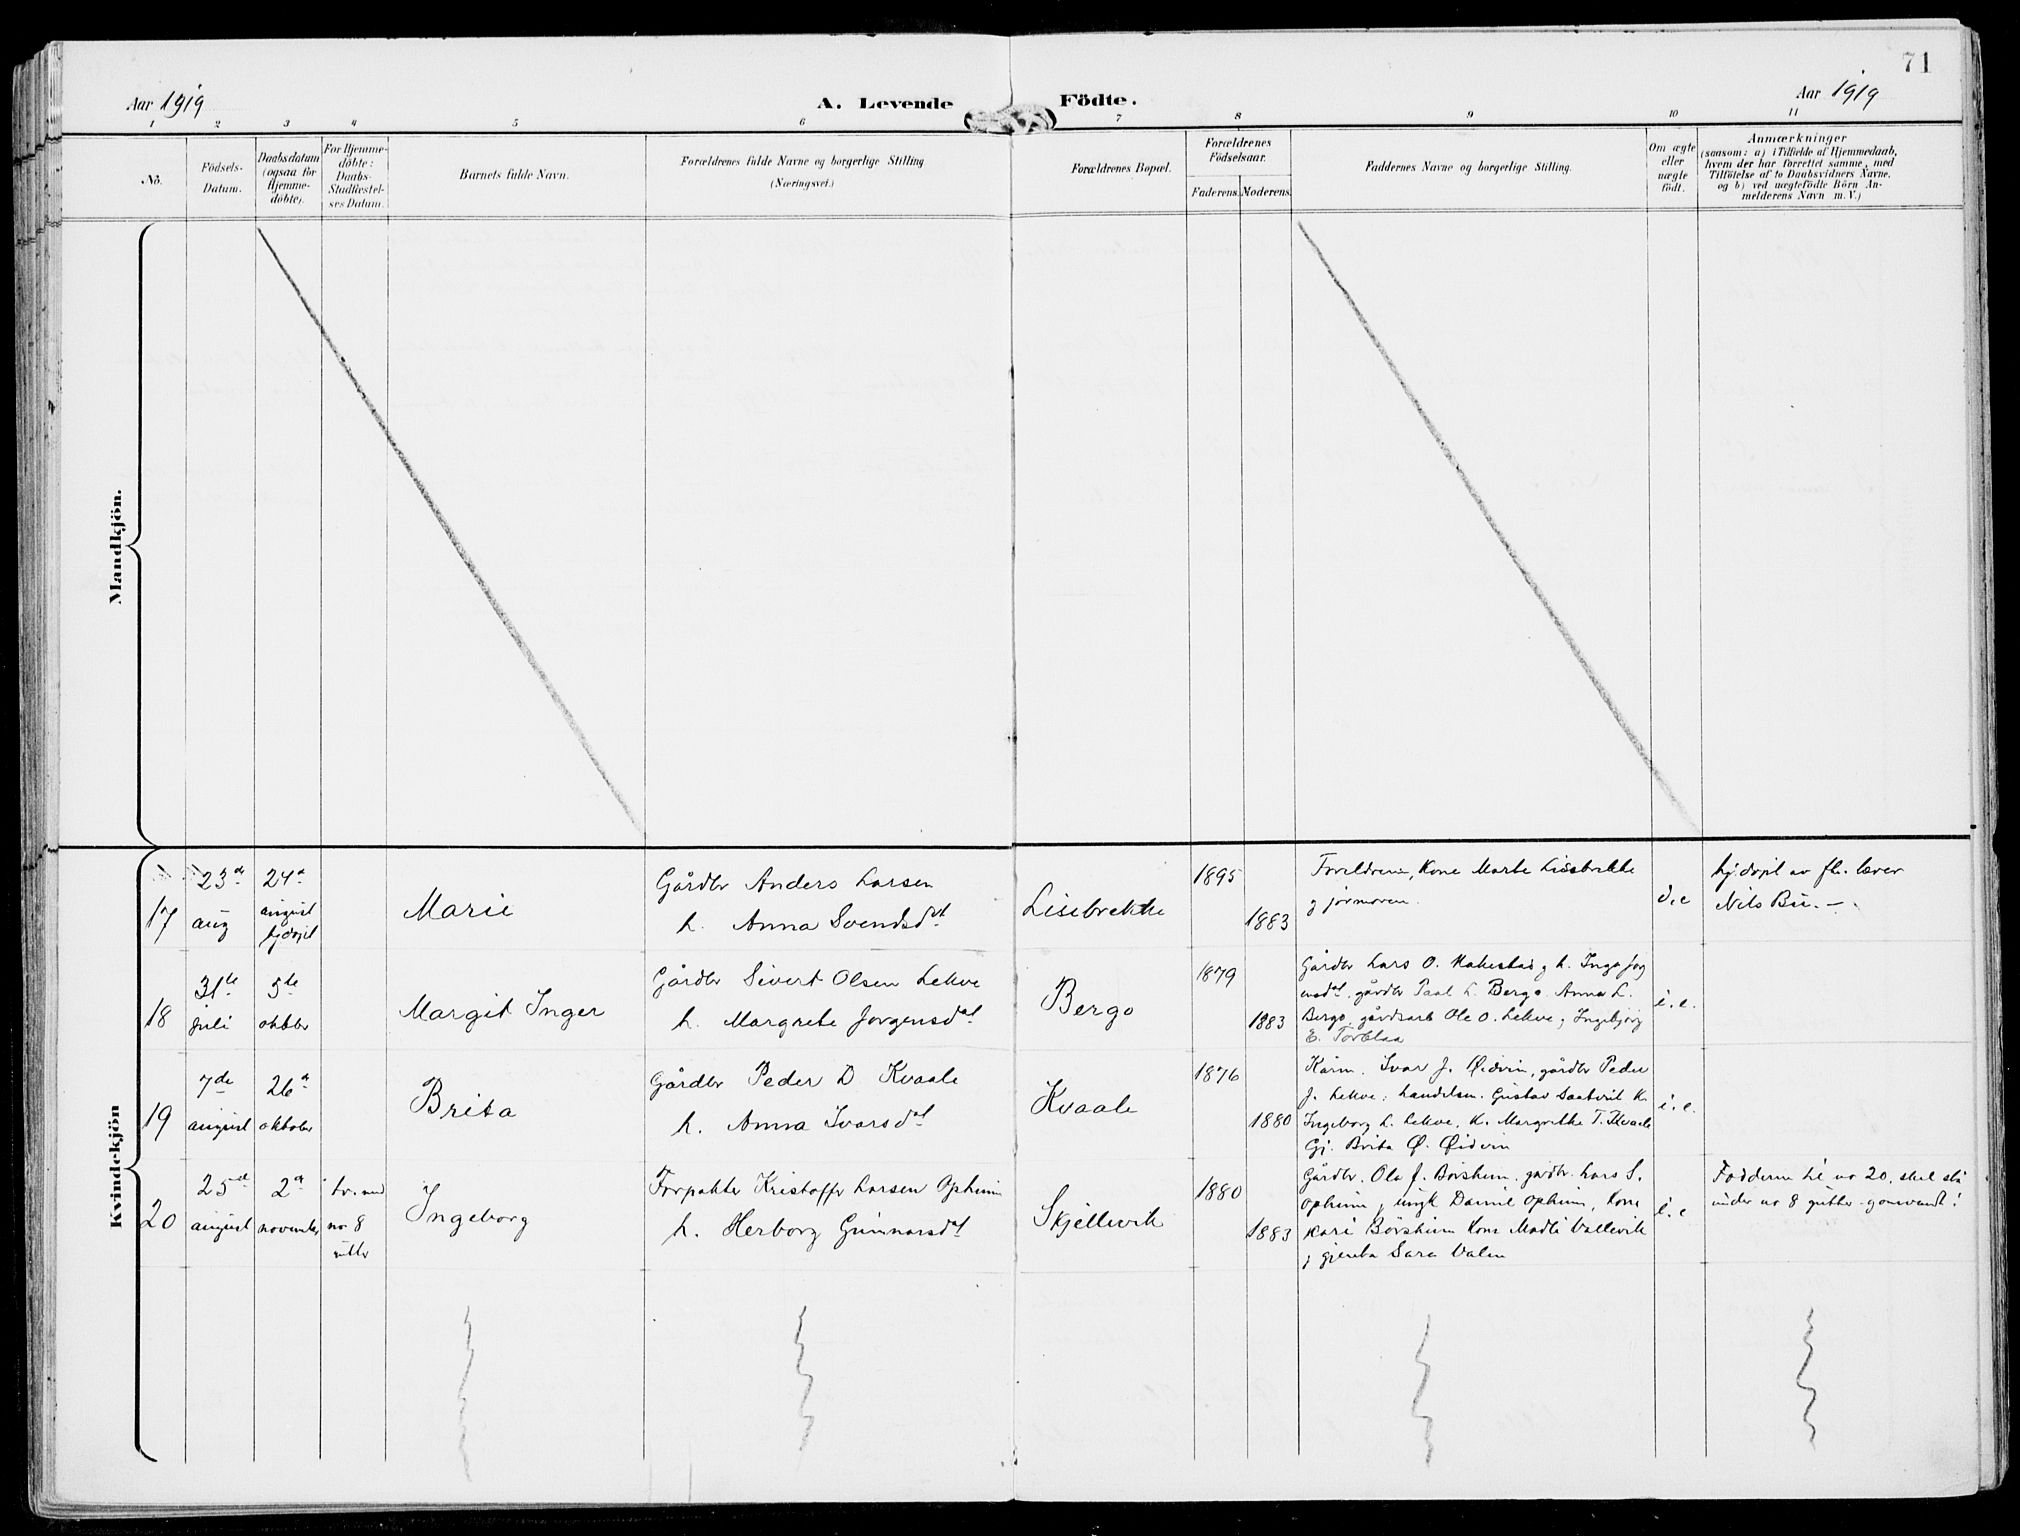 71
Aar 1919
A. Levende
Födte.
Aar 1919
1 2 3 4 5 6 7 8 9 10 11
No.
Födsels-
Datum.
Daabsdatum
(ogsaa för
Hjemme-
döbte).
For Hjemme-
döbte:
Daabs-
Stadfæstel-
ses Datum.
Barnets fulde Navn.
Forældrenes fulde Navne og borgerlige Stilling
(Næringsvei.)
Forældrenes Bopæl.
Forældrenes
Födselsaar.
Faderens. Moderens.
Faddernes Navne og borgerlige Stilling.
Om ægte
eller
uægte
födt.
Anmærkninger
(saasom: a) i Tilfælde af Hjemmedaab,
hvem der har forrettet samme, med
Tilföielse af to Daabsvidners Navne,
og b) ved uægtefödte Börn An-
melderens Navn m. V.)
Mandkjön.
Kvindekjön
17
23de
aug
24de
august
hjdøpt
Marie
Gårdbr Anders Larsen
h. Anna Svendsdat
Lisebrekke
1895
1883
Foreldrene, Kone Marte Lisebrekke
og jormoren.
hj.døpt av fh. lærer
Nils Bu.-
18
31te
juli
5te
oktober
Margit Inger
Gårdbr Sivert Olsen Lekve
h. Margrete Jorgensdat
Bergo
1879
1883
Gårdbr Lars O. Hakestad, h. Inga Jorg
ensdat, gårdbr Paal L. Bergo. Anna L.
Bergo, gårdsarb Ole O. Lekve, Ingebjørg
E. Torblaa
i.e.
19
7de
august
26de
oktober
Brita
Gårdbr Peder D Kvaale
h. Anna Ivarsdat
Kvaale
1876
1880
Kårm. Ivar J. Øidvin, gårdbr Peder
J. Lekve, handelsm. Gustav Saatvit K.
Ingeborg L. Lekve, K. Margrethe T. Kvaale
Gj. Brita Ø. Øidvin
i.e.
20
25de
august
2de
november
tv. med
no 8
gutter
Ingeborg
Forpakter Kristoffer Larsen Opheim
h. Herborg Gunnarsdat
Skjellevik
1880
1883
Gårdbr. Ola J. Børsheim, gårdbr. Lars S.
Opheim, ungk Daniel Opheim, Kone
Kari Børsheim Kone Madli Vallevik
, gjenta Sara Valen
i.e
Fadderne til no 20, skal stå
under no 8 gutter - omvendt!